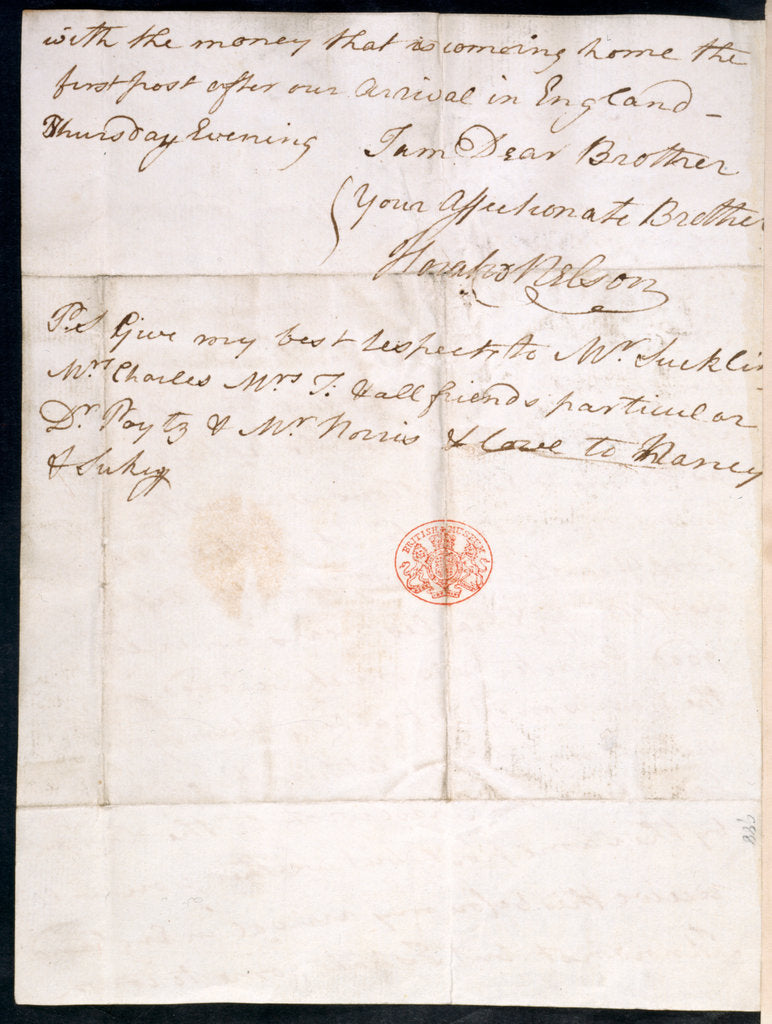 with the money that is comeing home the
first post after our Arrival in England –
Thursday Evening I am Dear Brother
Your Affectionate Brother
Horatio Nelson
P.S Give my best respects to Mr. Sucklin
Mrs Charles Mrs T. & all friends particular
Dr. Poytz & Mr. Norris & love to Nancy
& Sukey
BRITISH MUSEUM